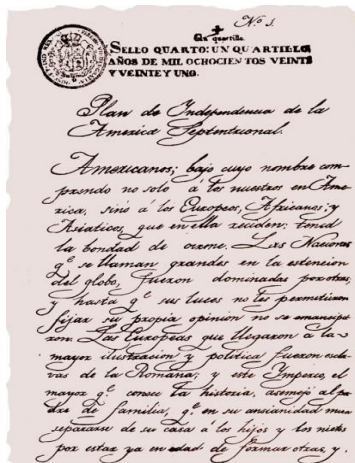 Nº 1.
Un quartillo.
SELLO QUARTO: UN QUARTILLO,
AÑOS DE MIL OCHOCIENTOS VEINTE
Y VEINTE Y UNO.
Plan de Independencia de la
America Septentrional.
Americanos; bajo cuyo nombre com-
prendo no solo á los nuestros en Ame-
rica, sinó á los Europeos, Africanos, y
Asiaticos, que en ella reciden: tened
la bondad de oirme. Las Naciones
q.e se llaman grandes en la estencion
del globo, fueron dominadas por otras,
y hasta q.e sus luces no les permitieron
fijar su propia opinion no se emancipa-
ron. Las Europeas que llegaron á la
mayor ilustracion y politica fueron escla-
vas de la Romana; y este Imperio, el
mayor q.e conoce la historia, asemejó al pa-
dre de familia, q.e en su ansianidad mira
separarse de su casa á los hijos y los nietos
por estar ya en edad de formar otras, y